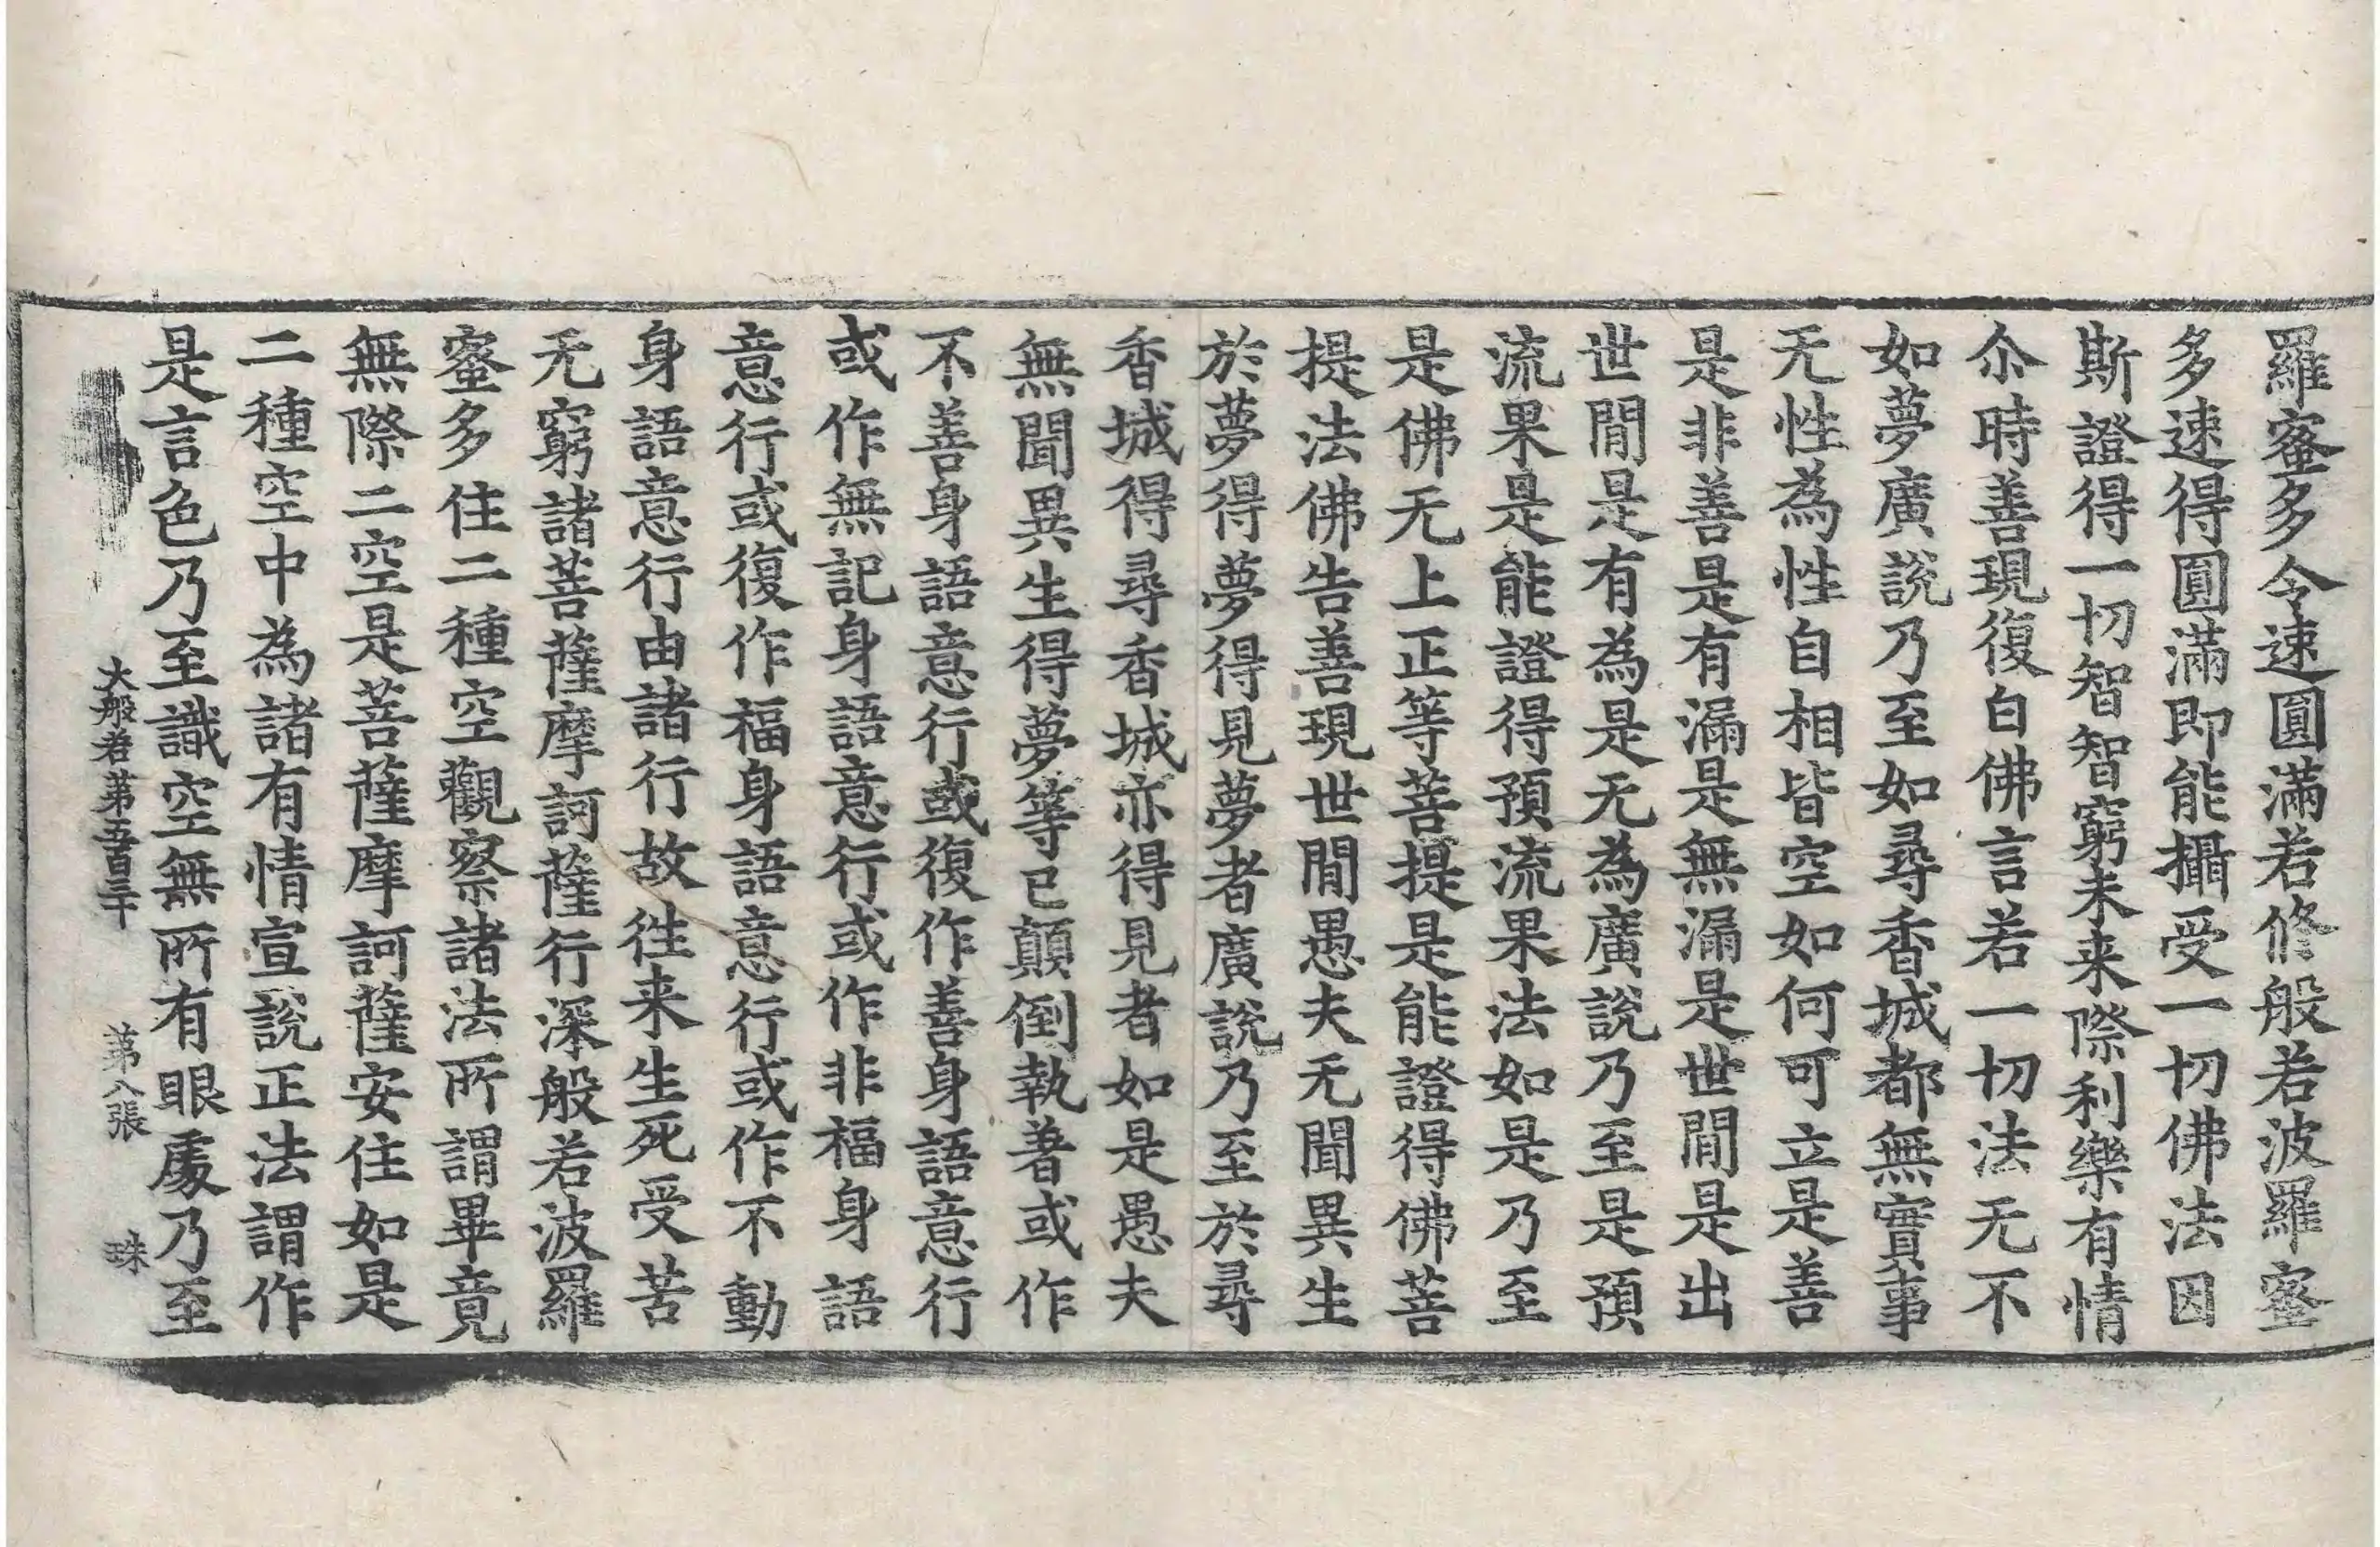 羅蜜多令速圓滿若修般若波羅蜜
多速得圓滿即能攝受一切佛法因
斯證得一切智智窮未来際利樂有情
尒時善現復白佛言若一切法无不
如夢廣說乃至如尋香城都無實事
无性為性自相皆空如何可立是善
是非善是有漏是無漏是世閒是出
世閒是有為是无為廣說乃至是預
流果是能證得預流果法如是乃至
是佛无上正等菩提是能證得佛菩
提法佛告善現世閒愚夫无聞異生
於夢得夢得見夢者廣說乃至於尋
香城得尋香城亦得見者如是愚夫
無聞異生得夢等已顛倒執著或作
不善身語意行或復作善身語意行
或作無記身語意行或作非福身語
意行或復作福身語意行或作不動
身語意行由諸行故往来生死受苦
无窮諸菩薩摩訶薩行深般若波羅
蜜多住二種空觀察諸法所謂畢竟
無際二空是菩薩摩訶薩安住如是
二種空中為諸有情宣說正法謂作
是言色乃至識空無所有眼處乃至
大般若第五百三十 第八張 珠